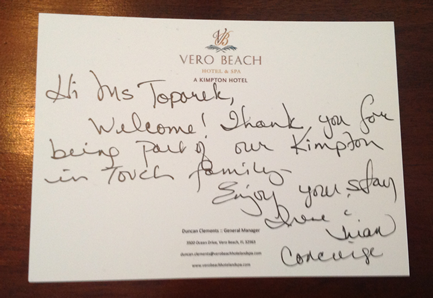 VB
VERO BEACH
HOTEL & SPA
A KIMPTON HOTEL
Hi Ms Toporek,
Welcome! Thank you for
being part of our Kimpton
in Touch family-
Enjoy your stay
Irene
Concierge
Duncan Clements | General Manager
3500 Ocean Drive, Vero Beach, FL 32963
duncan.clements@verobeachhotelandspa.com
www.verobeachhotelandspa.com